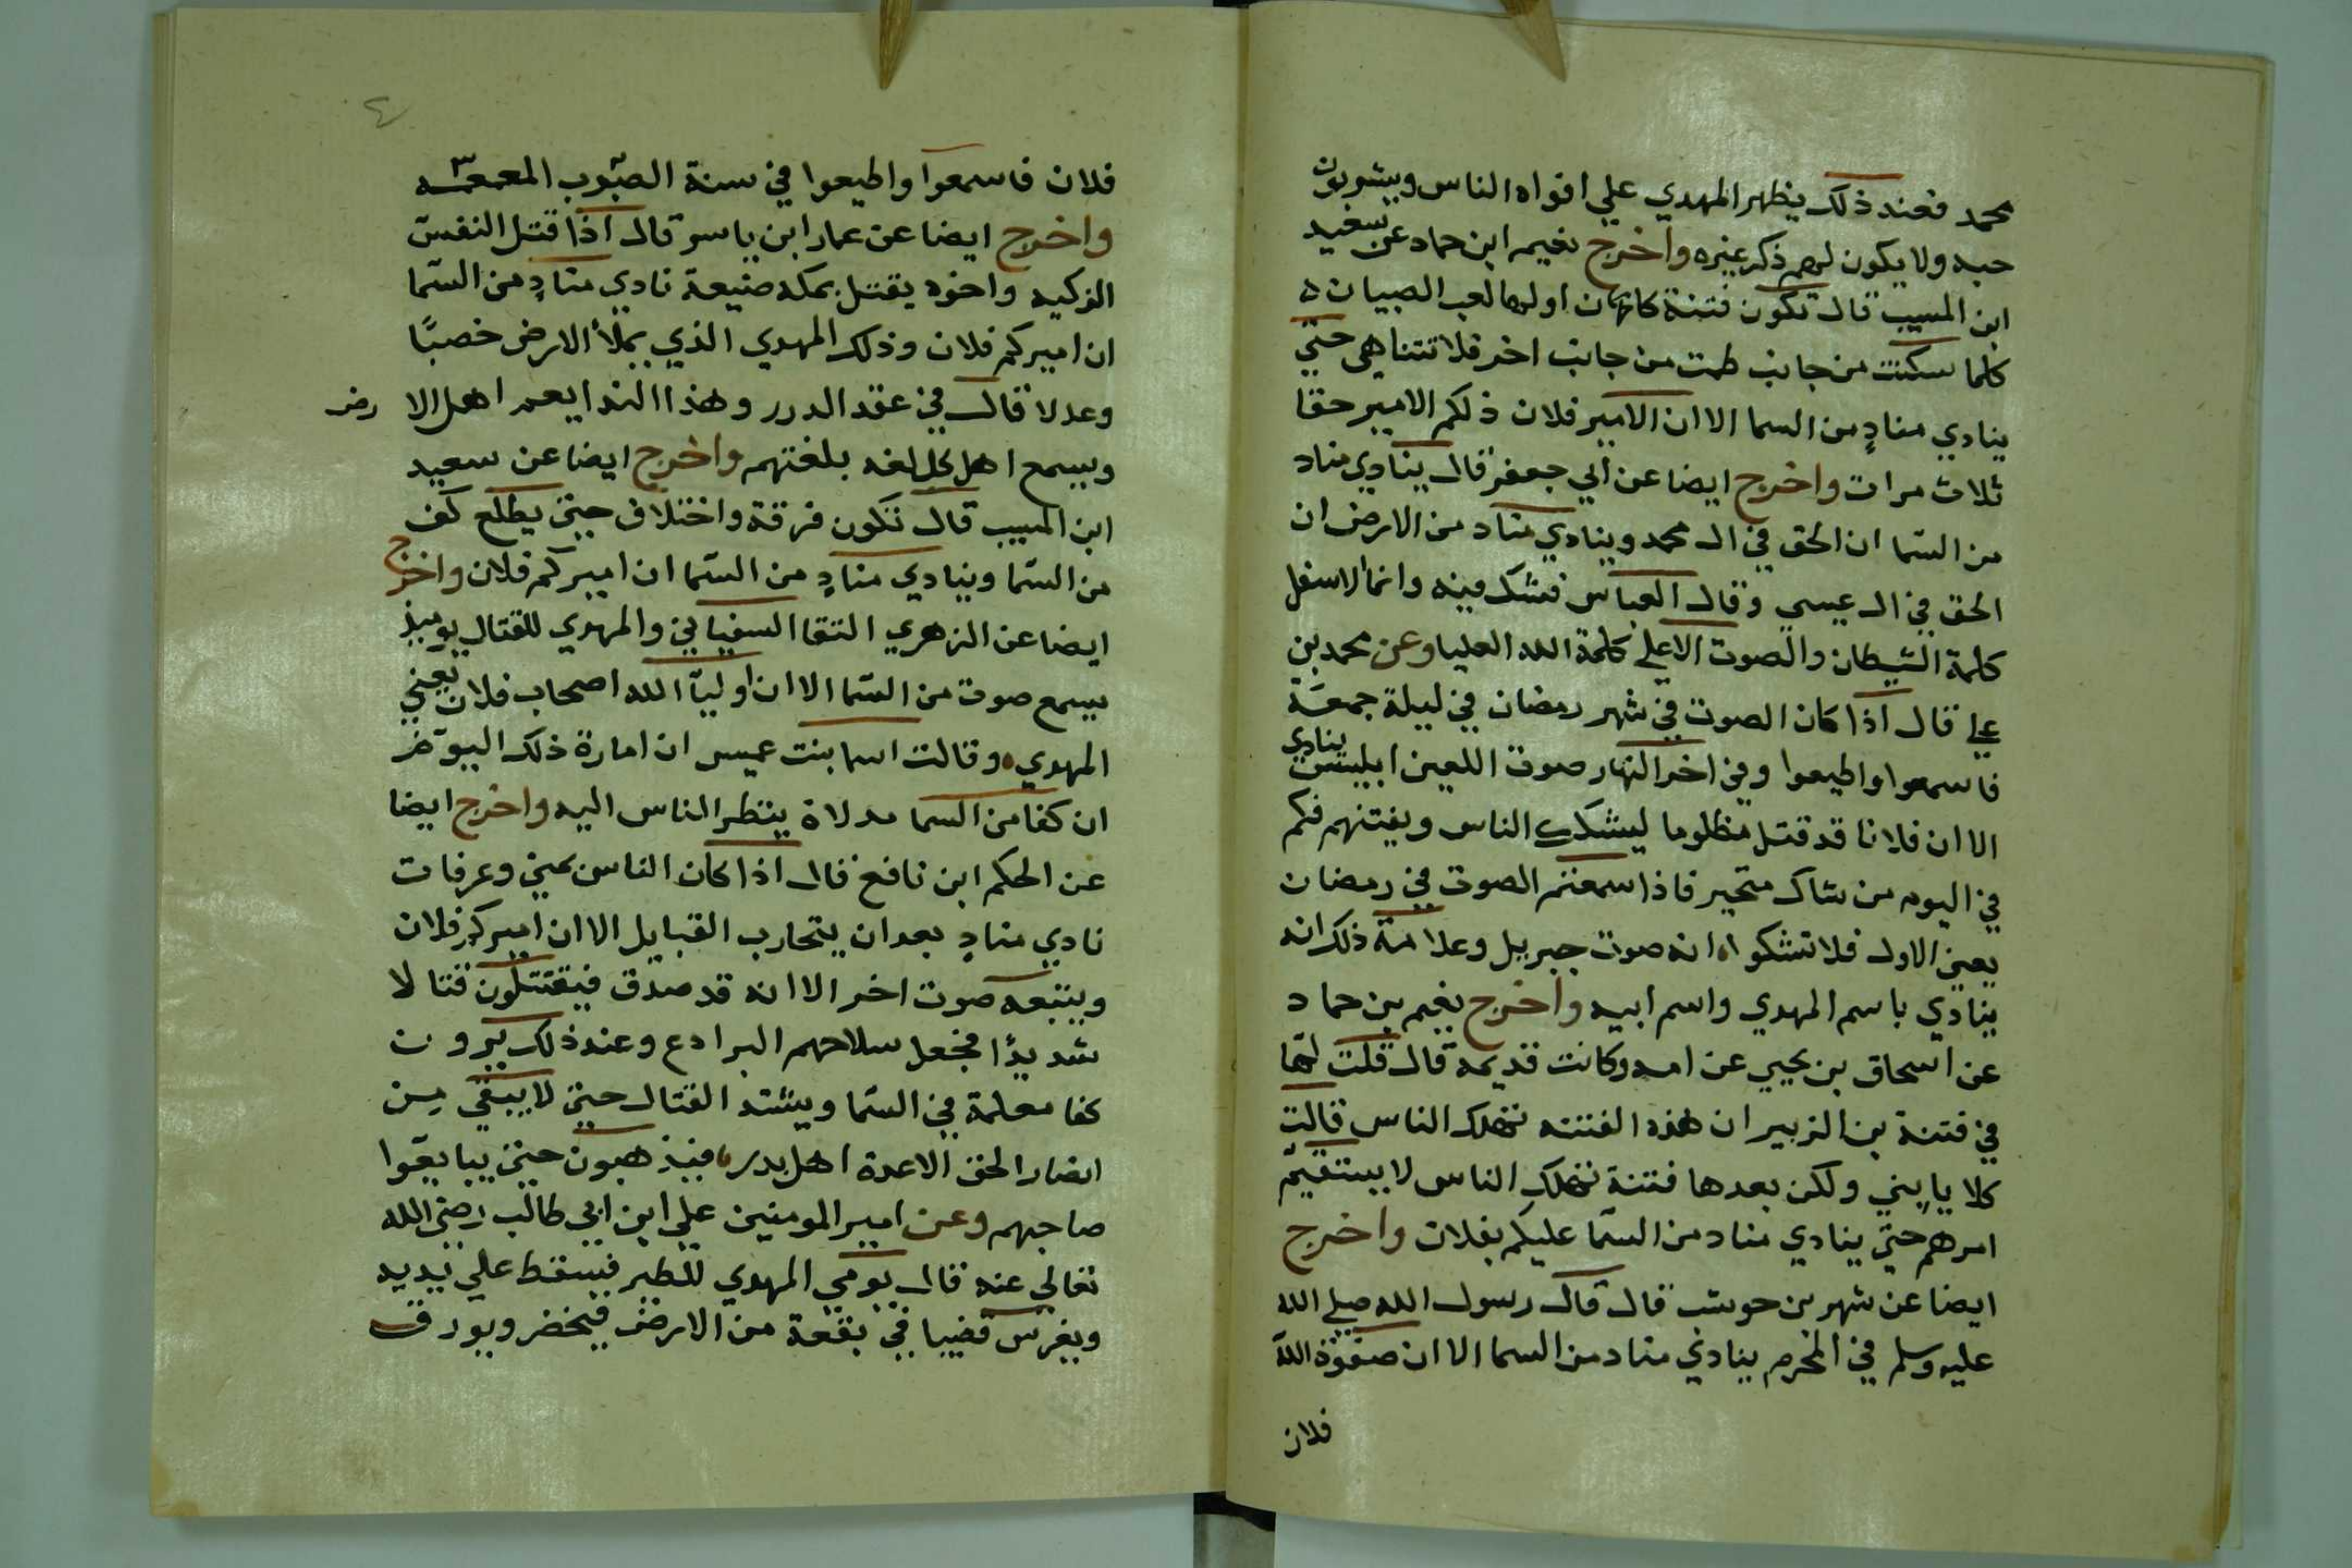 محمد فعند ذلك يظهر المهدي علي افواه الناس ويشربون
حبه ولا يكون لهم ذكر غيره واخرج نعيم ابن حماد عن سعيد
ابن المسيب قال تكون فتنة كان اولها لعب الصبيان
كلما سكنت من جانب طمت من جانب اخر فلا تتناهي حتي
ينادي منادٍ من السما الا ان الامير فلان ذلكم الامير حقا
ثلاث مرات واخرج ايضا عن ابي جعفر قال ينادي مناد
من السّما ان الحق في ال محمد وينادي مناد من الارض ان
الحق في ال عيسي وقال العباس فشك فيه وانما الاسفل
كلمة الشيطان والصوت الاعلي كلمة الله العليا وعن محمد بن
علي قال اذا كان الصوت في شهر رمضان في ليلة جمعة
فاسمعوا واطيعوا وفي اخر النهار صوت اللعين ابليس ينادي
الا ان فلانا قد قتل مظلوما ليشكك الناس ويفتنهم فكم
في اليوم من شاك متحير فاذا سمعتم الصوت في رمضان
يعني الاول فلا تشكوا انه صوت جبريل وعلامة ذلك انه
ينادي باسم المهدي واسم ابيه واخرج نعيم بن حماد
عن اسحاق بن يحيي عن امه وكانت قديمة قال قلت لها
في فتنة بن الزبير ان هذه الفتنه تهلك الناس قالت
كلا يا بني ولكن بعدها فتنة تهلك الناس لا يستقيم
امرهم حتي ينادي مناد من السّما عليكم بفلان واخرج
ايضا عن شهر بن حوشب قال قال رسول الله صلي الله
عليه وسلم في المحرم ينادي مناد من السما الا ان صفوة الله
فلان
٤
فلان فاسمعوا واطيعوا في سنة الصوب المعمعه
واخرج ايضا عن عمار ابن ياسر قال اذا قتل النفس
الزكيه واخوه يقتل بمكه ضيعة نادي منادٍ من السّما
ان اميركم فلان وذلك المهدي الذي يملأ الارض خصبًا
وعدلا قال في عقد الدرر وهذا الندا يعم اهل الا رض
ويسمع اهل كل لغه بلغتهم واخرج ايضا عن سعيد
ابن المسيب قال تكون فرقة واختلاف حتي يطلع كف
من السّما وينادي منادٍ من السّما ان اميركم فلان واخرج
ايضا عن الزهري التقا السفياني والمهدي للقتال يوميذ
يسمع صوت من السّما الا ان اوليآ الله اصحاب فلان يعني
المهدي وقالت اسما بنت عميس ان امارة ذلك اليوم
ان كفا من السما مدلاة ينظر الناس اليه واخرج ايضا
عن الحكم ابن نافع قال اذا كان الناس بمني وعرفات
نادي منادٍ بعد ان يتحارب القبايل الا ان اميركم فلان
ويتبعه صوت اخر الا انه قد صدق فيقتتلون قتالا
شديدًا فجعل سلاحهم البرادع وعند ذلك يرون
كفا معلمة في السّما ويشتد القتال حتي لا يبقي من
انصار الحق الا عدة اهل بدر فيذهبون حتي يبايعوا
صاحبهم وعن امير المومنين علي ابن ابي طالب رضي الله
تعالي عنه قال يومي المهدي للطير فيسقط علي يديه
ويغرس قضيبا في بقعة من الارض فيخضر ويورق